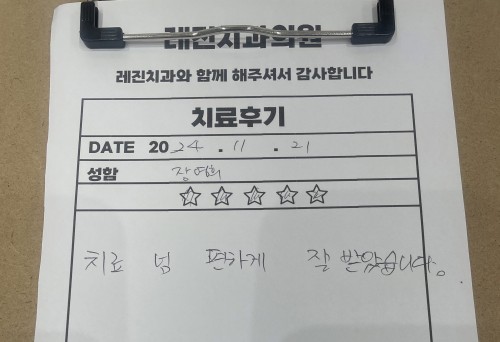 레진치과의원
레진치과와 함께 해주셔서 감사합니다
치료후기
DATE 2024 . 11 . 21
성함 장영희
치료 넘 편하게 잘 받았습니다.